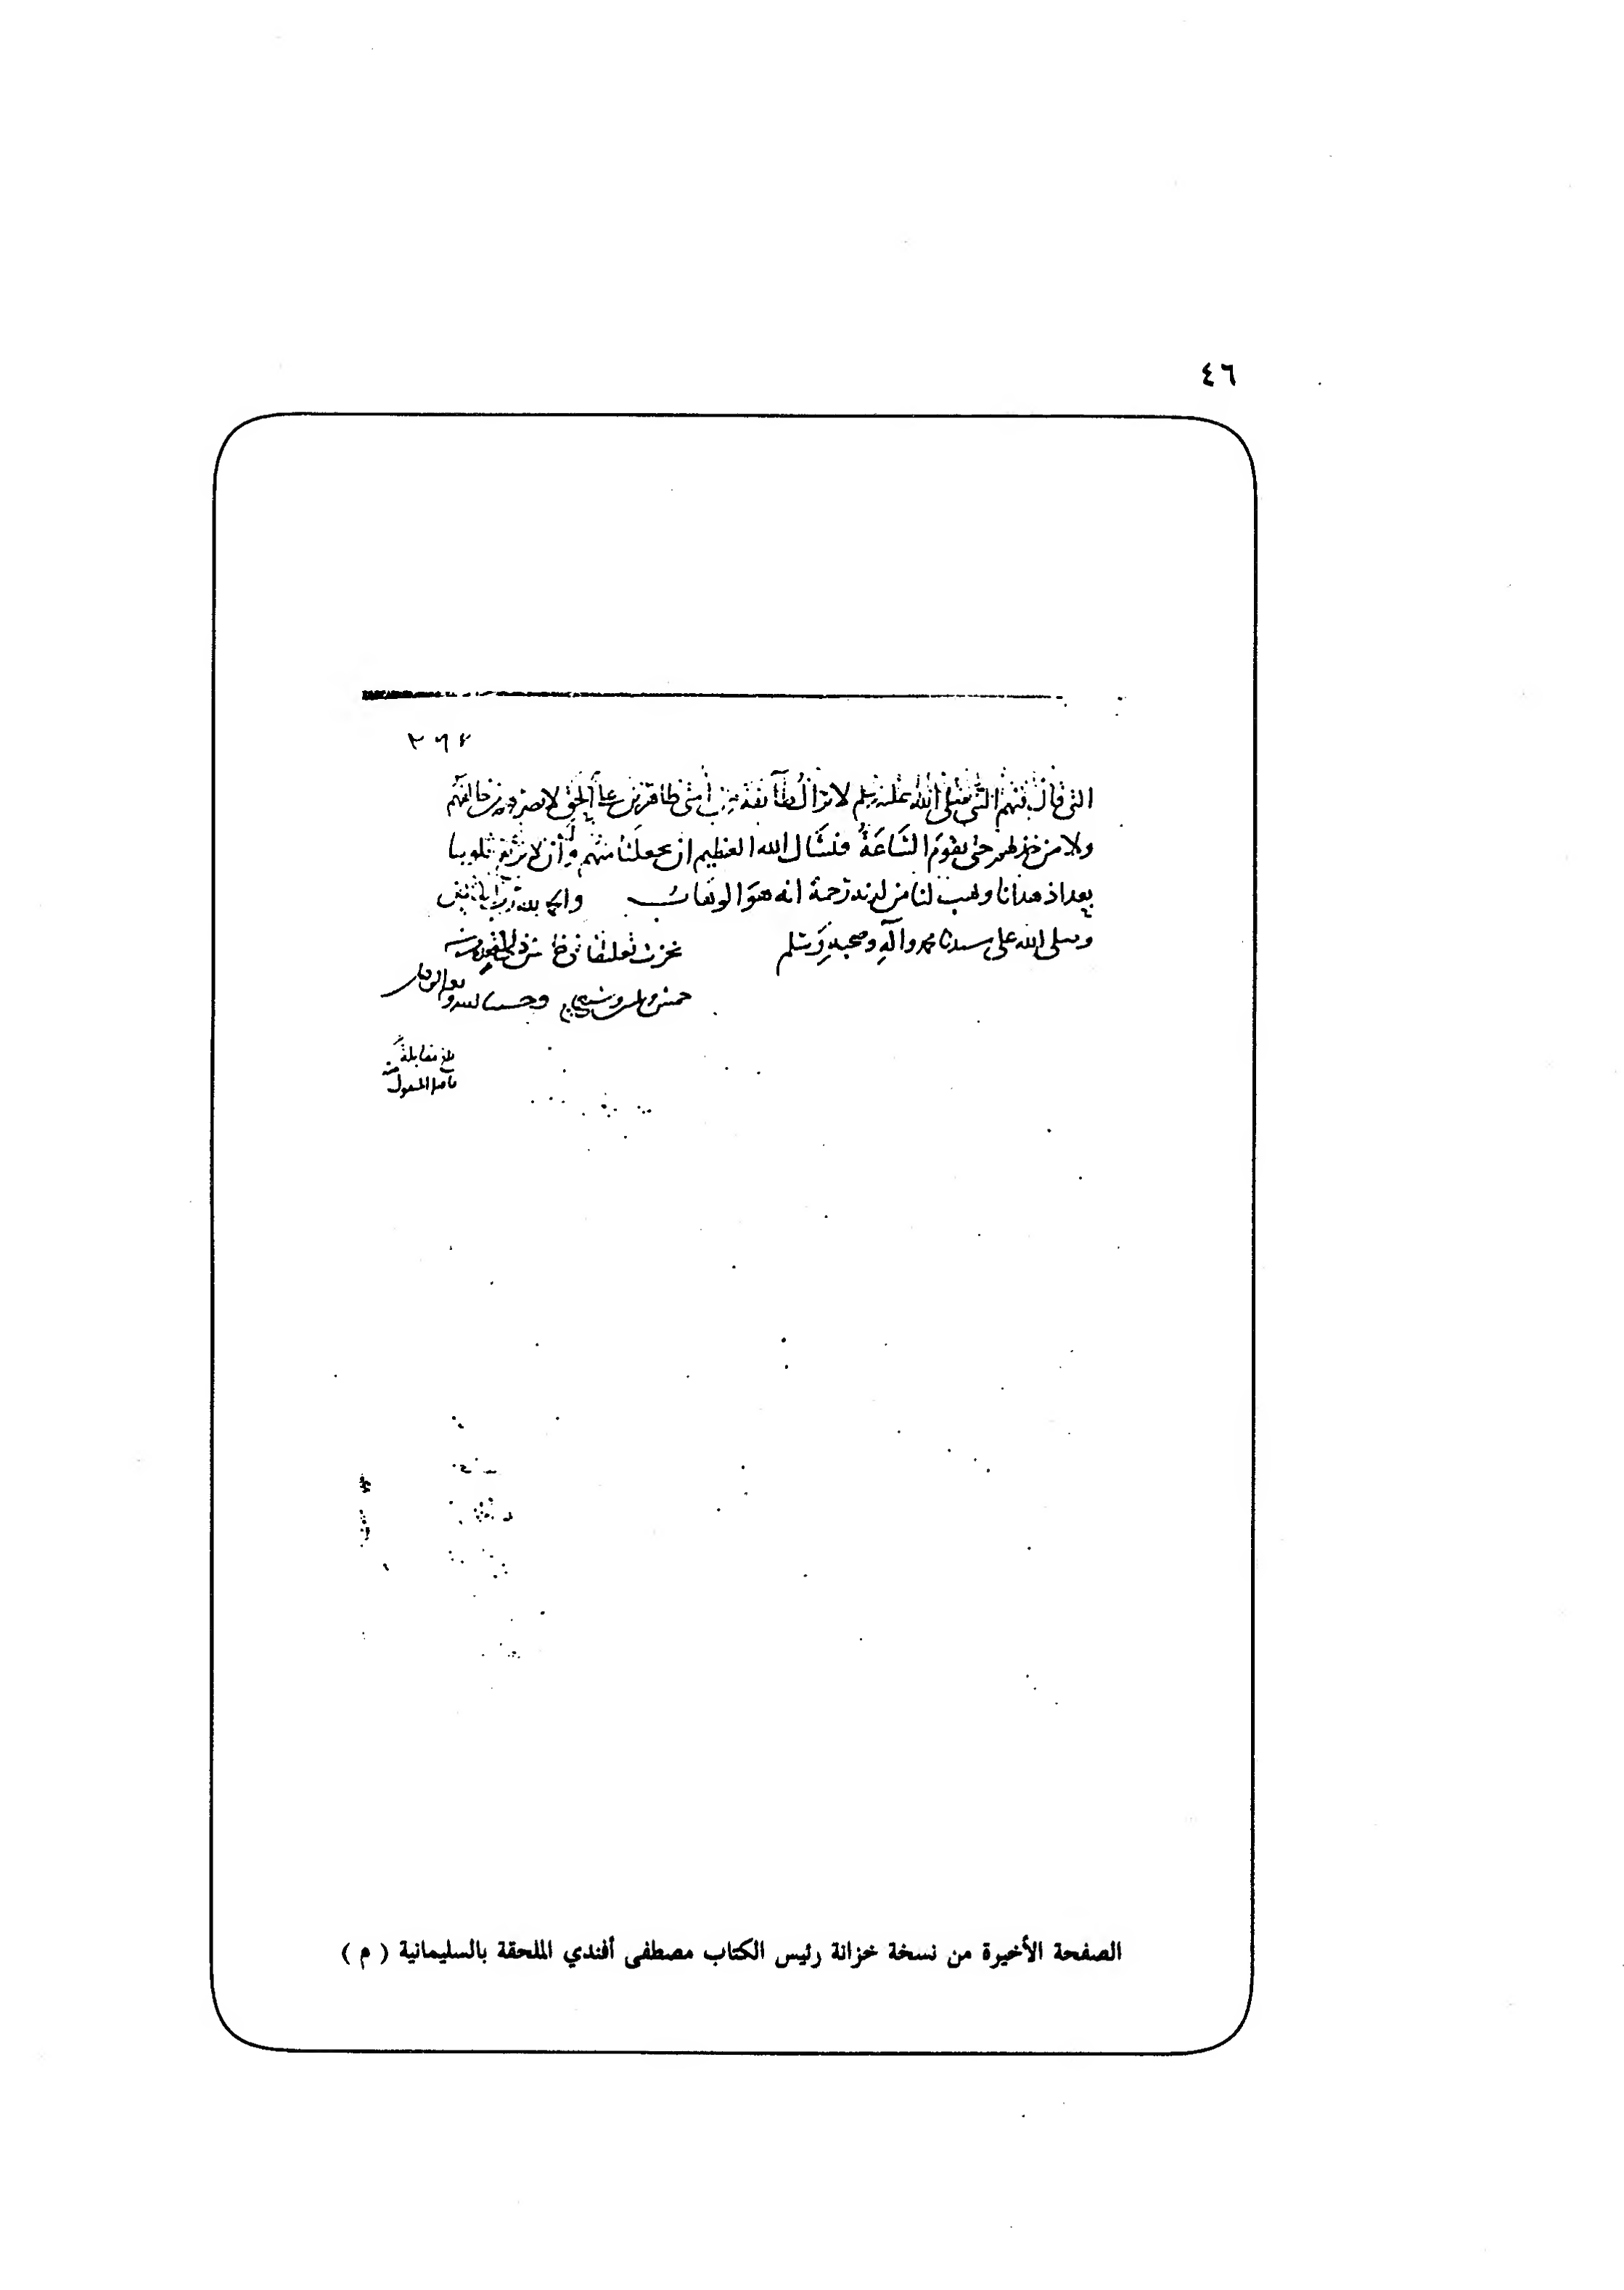 ٤٦
٢٦٤
التي قال فيهم النبي صلى الله عليه وسلم لا تزال طائفة من أمتي ظاهرين على الحق لا يضرهم من خالفهم
ولا من خذلهم حتى تقوم الساعة فنسأل الله العظيم ان يجعلنا منهم وأن لا يزيغ قلوبنا
بعد اذ هدانا ويهب لنا من لدنه رحمة انه هو الوهاب والحمد لله رب العالمين
وصلى الله على سيدنا محمد وآله وصحبه وسلم نجزت تعليقا في
وحسبنا الله ونعم الوكيل
بلغ مقابلة
بأصله المنقول منه
الصفحة الأخيرة من نسخة خزانة رئيس الكتاب مصطفى أفندي الملحقة بالسليمانية ( م )